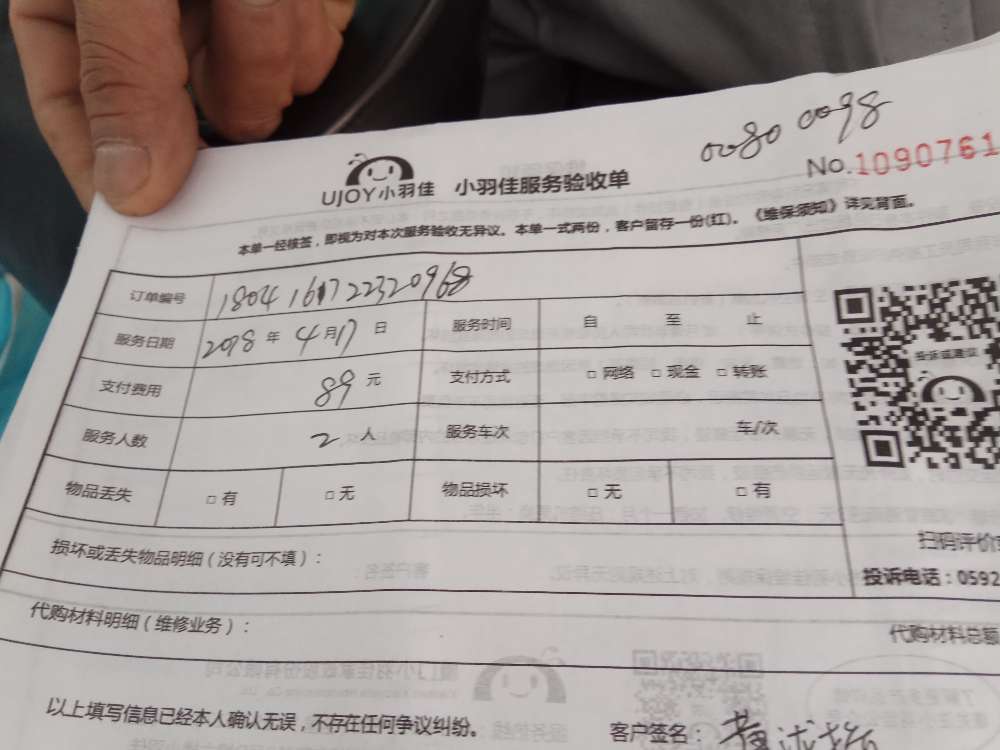 0080 0098
No.1090761
UJOY小羽佳 小羽佳服务验收单
本单一经核签，即视为对本次服务验收无异议。本单一式两份，客户留存一份(红)。《维保须知》详见背面。
订单编号 1804161722320968
服务日期 2018 年 4 月 17 日 服务时间 自 至 止
支付费用 89 元 支付方式 □ 网络 □ 现金 □ 转账
投诉或建议
服务人数 2 人 服务车次 车/次
物品丢失 □ 有 □ 无 物品损坏 □ 无 □ 有
损坏或丢失物品明细（没有可不填）：
扫码评价
投诉电话：0592
代购材料明细（维修业务）：
代购材料总额
以上填写信息已经本人确认无误，不存在任何争议纠纷。
客户签名：黄